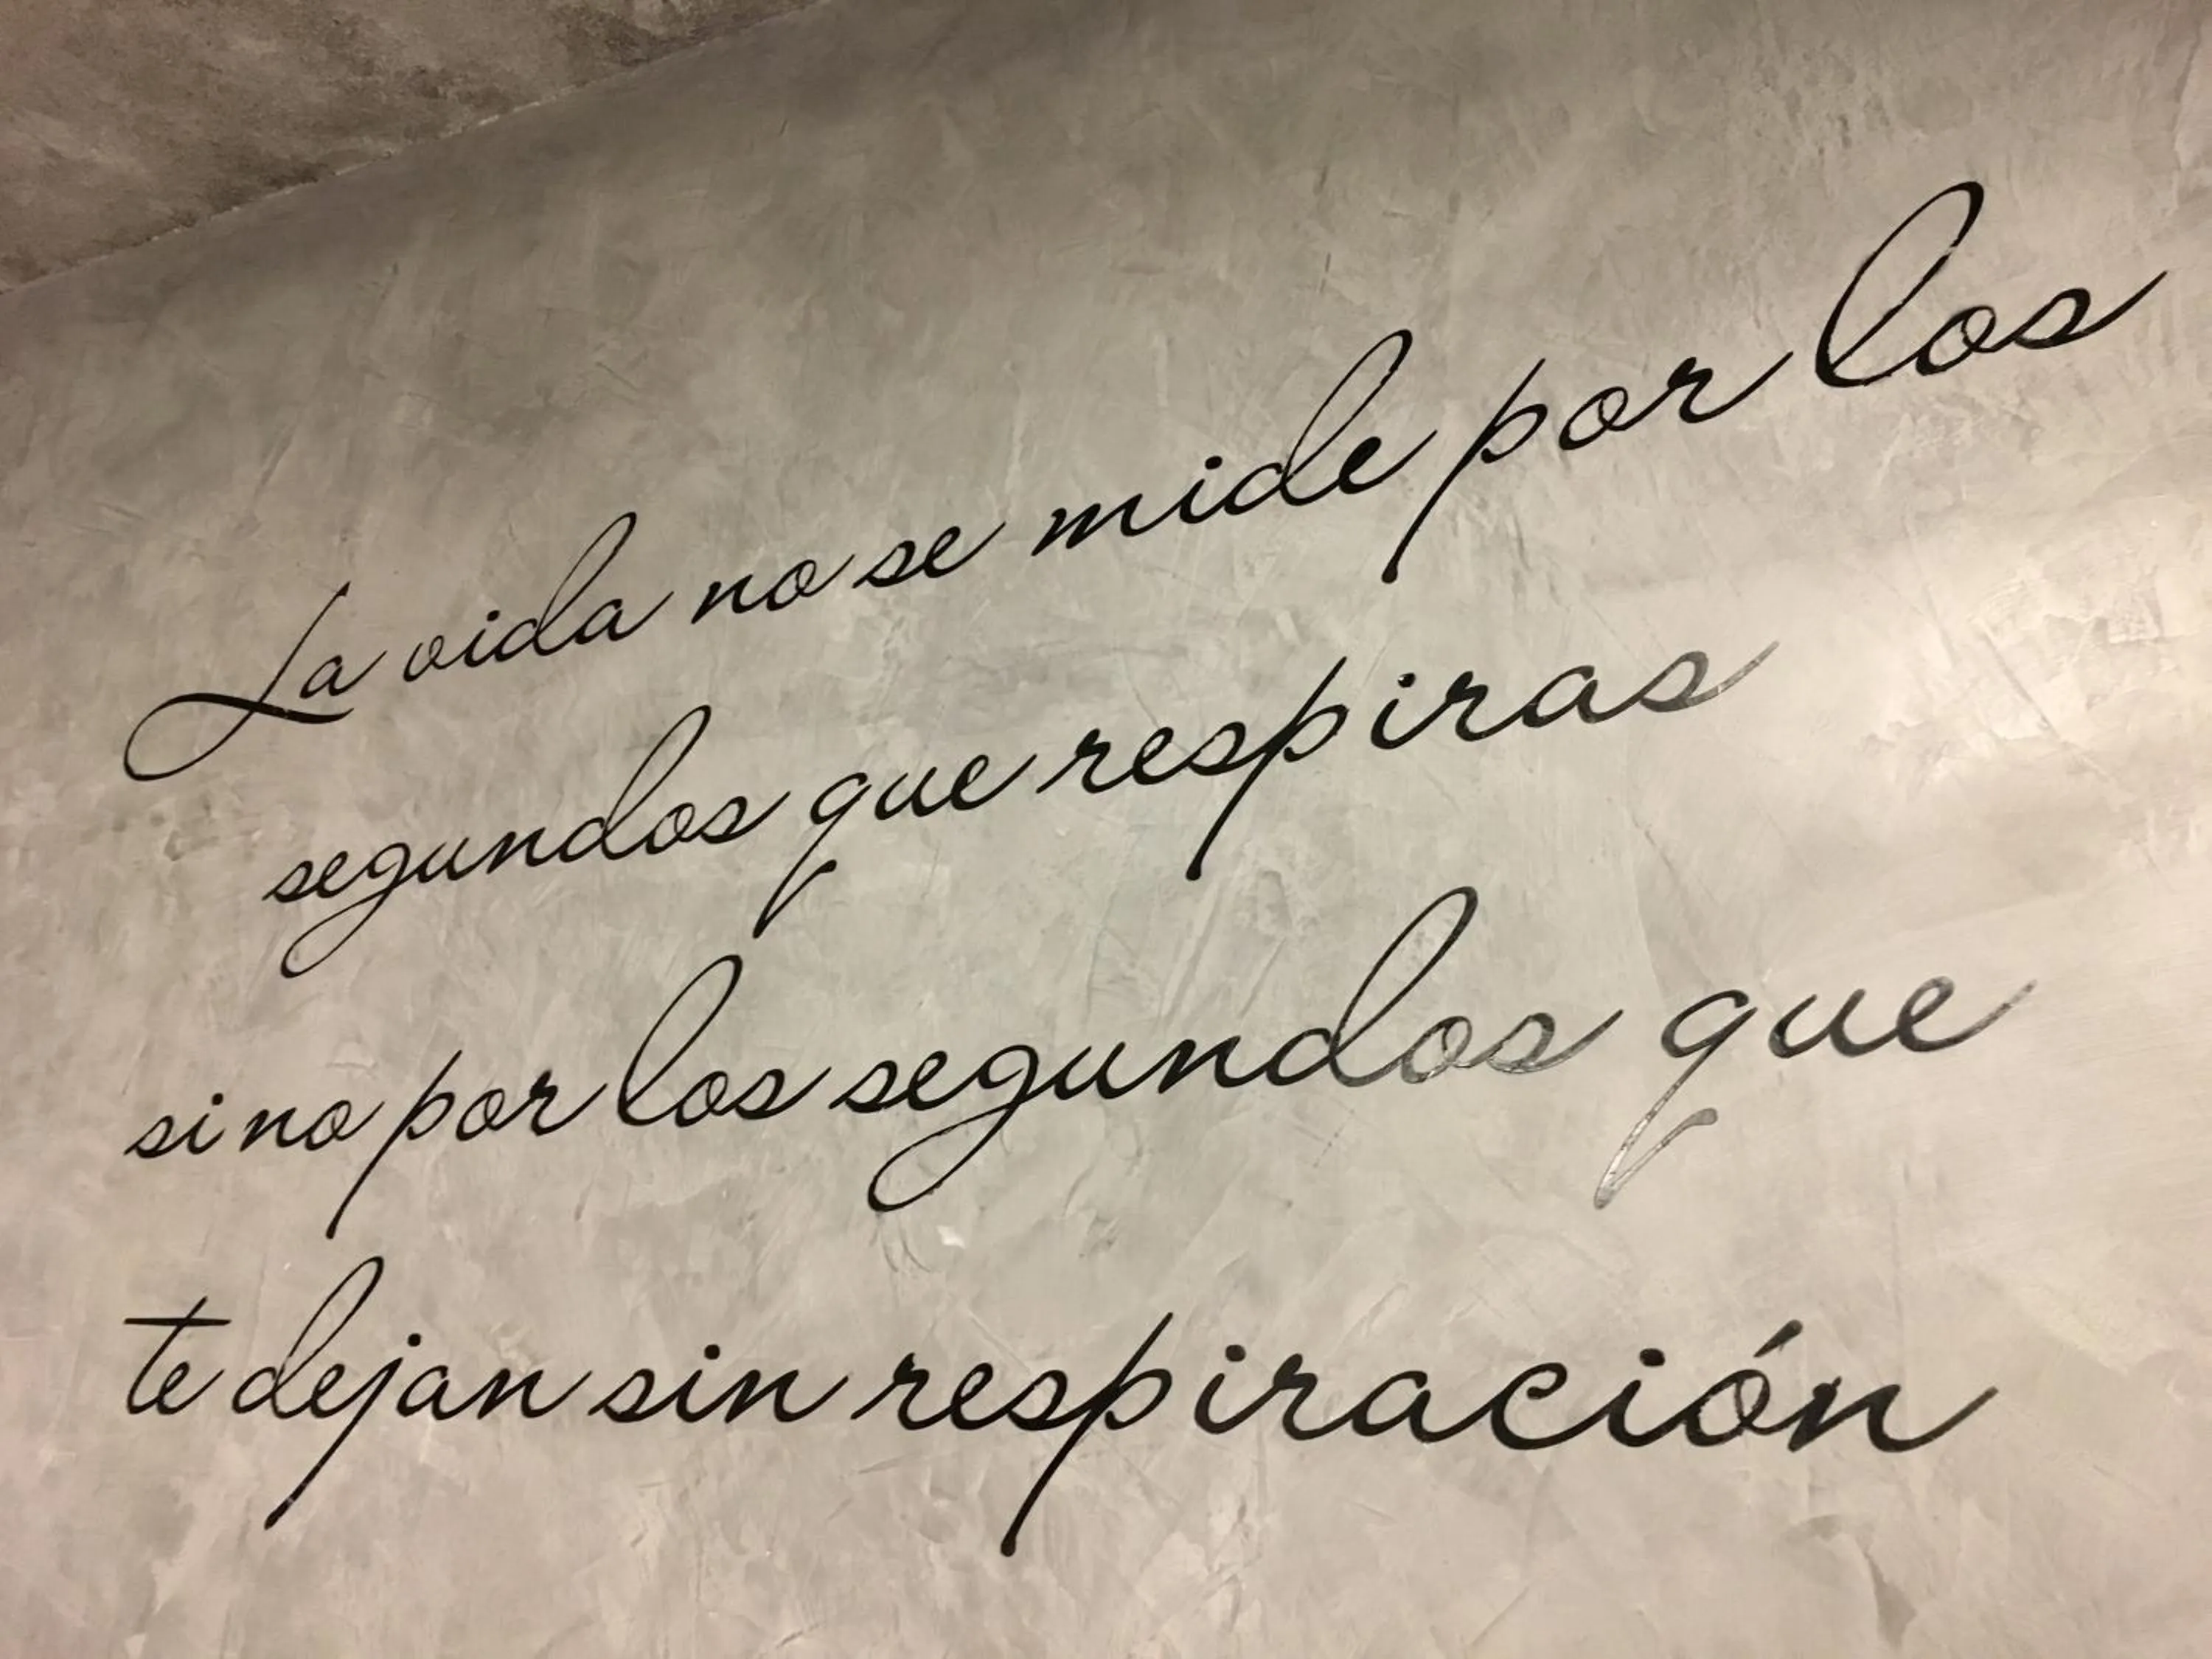 La vida no se mide por los
segundos que respiras
sino por los segundos que
te dejan sin respiración